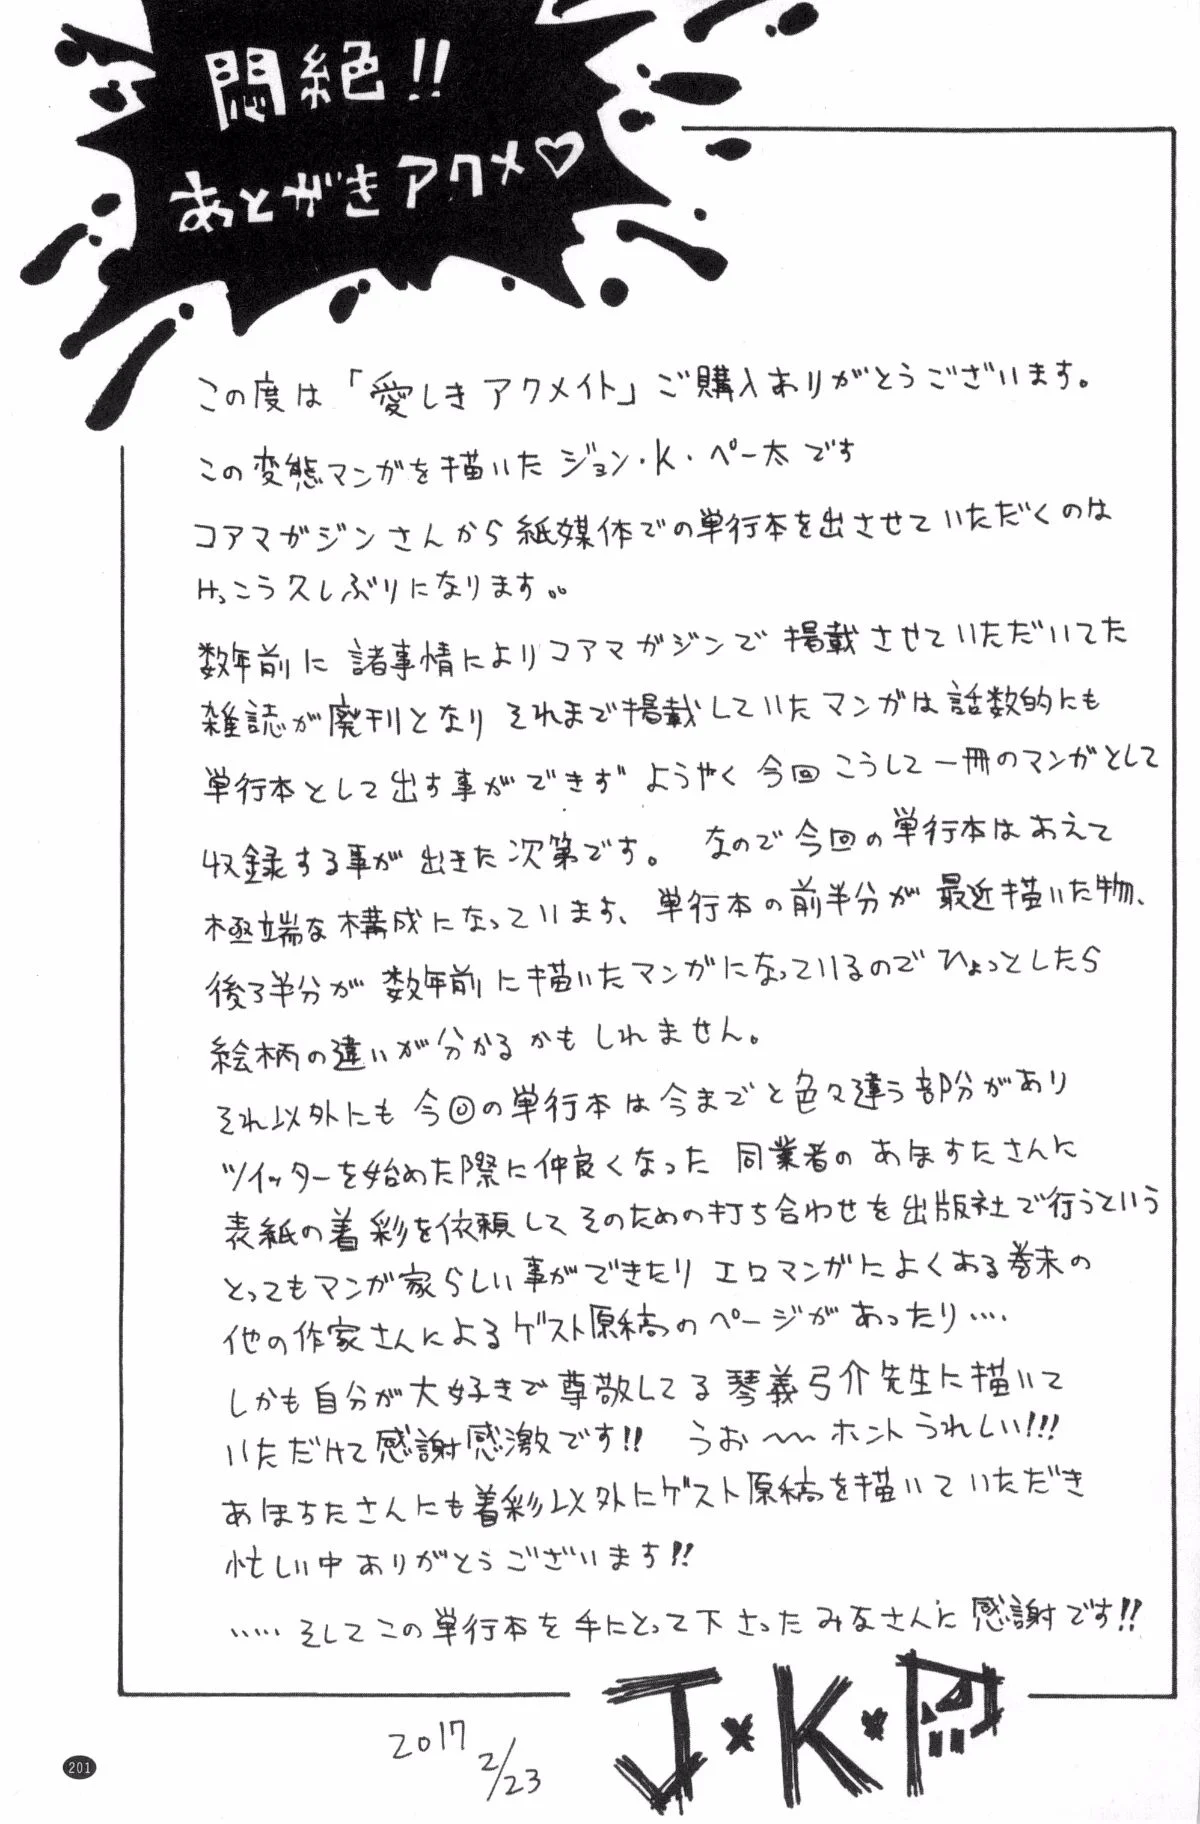 悶絶!!
あとがきアクメ♡
この度は「愛しきアクメイト」ご購入ありがとうございます。
この変態マンガを描いた ジョン・K・ペー太です
コアマガジンさんから紙媒体での単行本を出させていただくのは
けっこう久しぶりになります。。
数年前に 諸事情によりコアマガジンで 掲載させていただいてた
雑誌が廃刊となり それまで掲載していたマンガは話数的にも
単行本として出す事ができず ようやく今回こうして一冊のマンガとして
収録する事が出きた次第です。 なので今回の単行本はあえて
極端な構成になっています、単行本の前半分が最近描いた物、
後ろ半分が数年前に描いたマンガになっているのでひょっとしたら
絵柄の違いが分かるかもしれません。
それ以外にも今回の単行本は今までと色々違う部分があり
ツイッターを始めた際に仲良くなった 同業者の あほすたさんに
表紙の着彩を依頼してそのための打ち合わせを出版社で行うという
とってもマンガ家らしい事ができたり エロマンガによくある巻末の
他の作家さんによるゲスト原稿のページがあったり・・・
しかも自分が大好きで尊敬してる琴義弓介先生に描いて
いただけて感謝感激です!! うお〜〜ホントうれしい!!!
あほすたさんにも着彩以外にゲスト原稿を描いていただき
忙しい中ありがとうございます!!
・・・・・そしてこの単行本を手にとって下さったみなさんに感謝です!!
J・K・P
2017 2/23
201